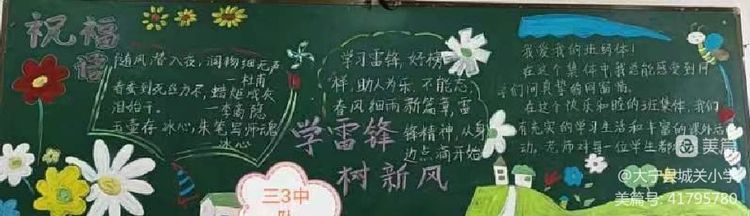 祝福
语
随风潜入夜，润物细无声
—杜甫
春蚕到死丝方尽，蜡炬成灰
泪始干。
—李商隐
玉壶存冰心，朱笔写师魂
—冰心
学习雷锋，好榜
样，助人为乐，不能忘
春风细雨新篇章，雷
锋精神，从身
边点滴开始
学雷锋
树新风
三3中
队
我爱我的班级体！
在这个集体中我总能感受到同
学们间真挚的
在这个快乐和睦的3班集体，我们
有充实的学习生活和丰富的课外活
动，老师对每一位学生都
美篇
@大宁县城关小学
美篇号：41795780